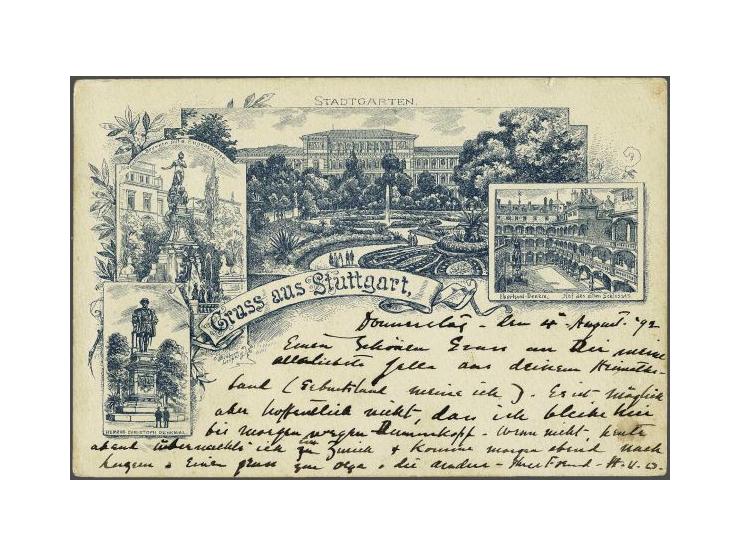 STADTGARTEN.
Gruss aus Stuttgart,
Eberhard-Denkm. Hof des alten Schlosses.
HERZOG CHRISTOPH DENKMAL
Donnerstag - den 4 August. '92
Einen Schönen Gruss an Dir meine
allerliebste aus deinem Heimaths-
land (Geburtsland meine ich). Es ist möglich
aber hoffentlich nicht, dass ich bleibe hier
bis morgen wegen Dummkopf - Wenn nicht, heute
abend übernachte ich in Zürich & komme morgen abend nach
Einen gruss zur Olga & die andern -